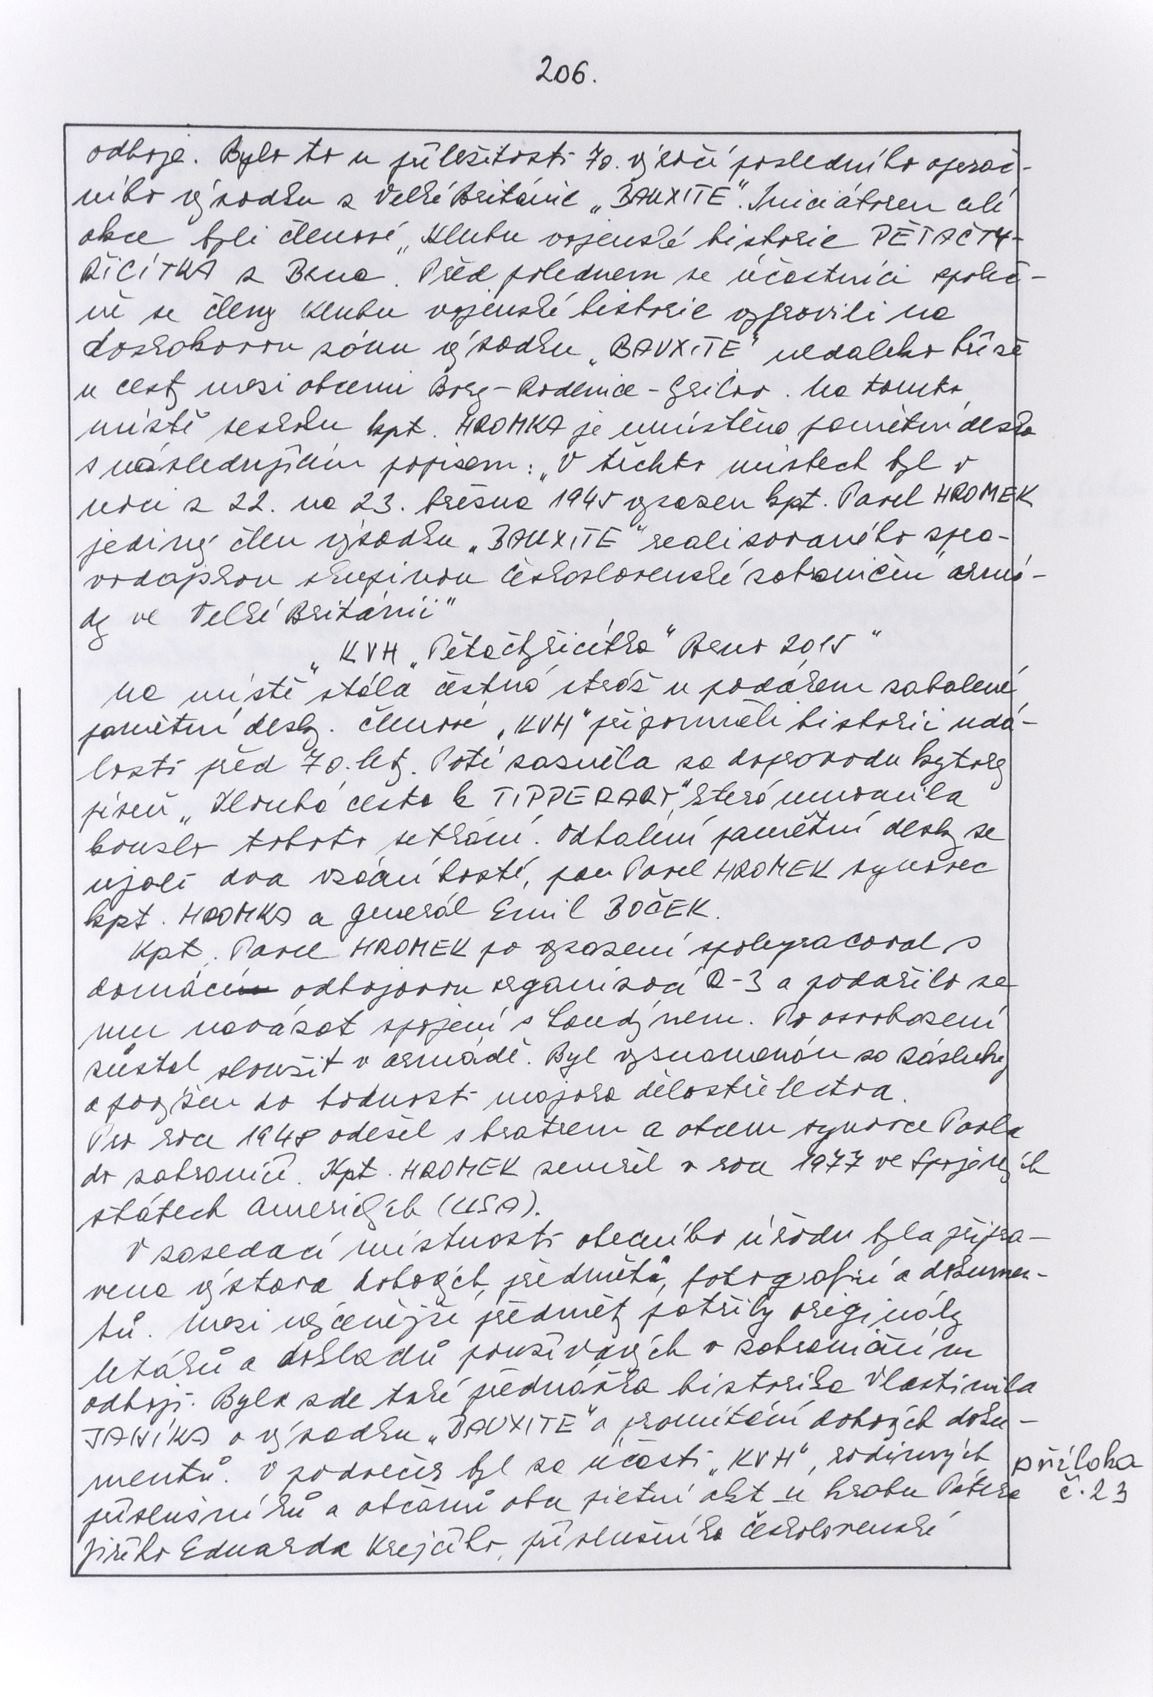 206.
odboje. Bylo to u příležitosti 70. výročí posledního operač-
ního výsadku z Velké Británie „BAUXITE". Iniciátorem celé
akce byli členové „Klubu vojenské historie PĚTAČTY-
ŘICÍTKA z Brna. Před polednem se účastníci společ-
ně se členy Klubu vojenské historie vypravili na
doskokovou zónu výsadku „BAUXITE" nedaleko
u cesty mezi obcemi Bory - Radenice - Gričov. Na tomto
místě seskoku kpt. HROMKA je umístěna pamětní deska
s následujícím popisem: „V těchto místech byl v
noci z 22. na 23. března 1945 vysazen kpt. Pavel HROMEK
jediný člen výsadku „BAUXITE" realizovaného zpra-
vodajskou skupinou československé zahraniční armá-
dy ve Velké Británii"
„KVH „Pětačtyřicítka" Brno 2015"
Na místě stála čestná stráž u padákem zahalené
pamětní desky. Členové „KVH" připomněli historii udá-
losti před 70. lety. Poté zazněla za doprovodu kytary
píseň „Dlouhá cesta k TIPPERARY", která umocnila
kouzlo tohoto setkání. Odhalení pamětní desky se
ujali dva vzácní hosté, pan Pavel HROMEK synovec
kpt. HROMKA a generál Emil BOČEK.
Kpt. Pavel HROMEK po vysazení spolupracoval s
domácí odbojovou organizací R-3 a podařilo se
mu navázat spojení s Londýnem. Po osvobození
zůstal sloužit v armádě. Byl vyznamenán za zásluhy
a povýšen do hodnosti majora dělostřelectva.
Po roce 1948 odešel s bratrem a otcem synovce Pavla
do zahraničí. Kpt. HROMEK zemřel v roce 1977 ve Spojených
státech Amerických (USA).
V zasedací místnosti obecního úřadu byla připra-
vena výstava dobových, předmětů, fotografií a dokumen-
tů. Mezi nejcennější předměty patřily originály
letáků a dokladů používaných v zahraničním
odboji. Byla zde také přednáška historika Vlastimila
JANÍKA o výsadku „BAUXITE" a promítání dobových doku-
mentů. V podvečer byl za účasti „KVH", rodinných
příslušníků a občanů obce pietní akt u hrobu Pátera
Jiřího Eduarda Krejčího, příslušníka československé
příloha
č. 23